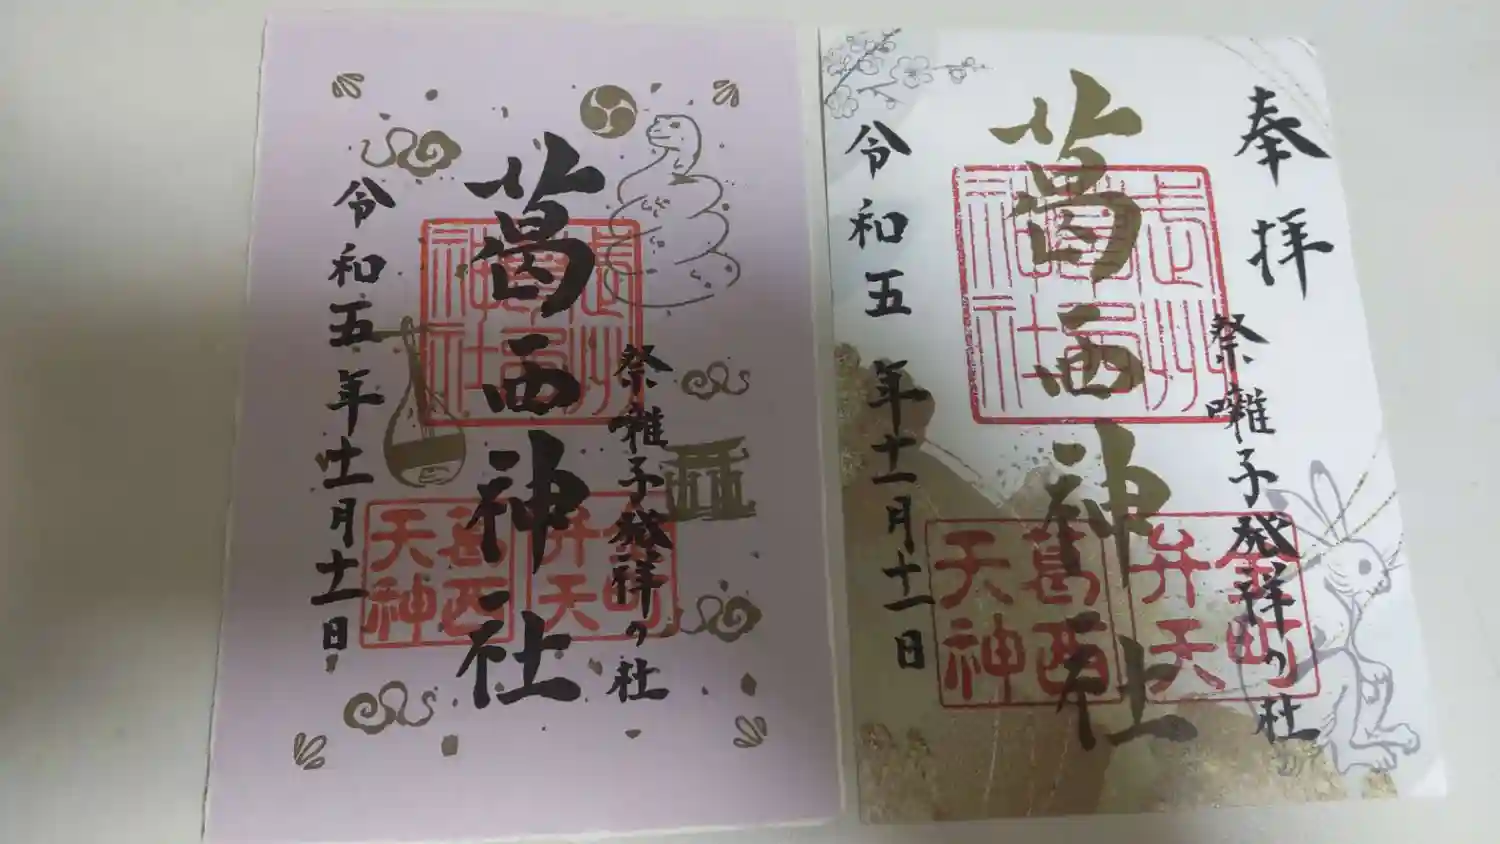 葛西神社
祭雅子発祥の社
令和五年十一月十一日
武州
葛西
神社
金町
弁天
葛西
天神
奉拝
葛西神社
祭囃子発祥の社
令和五年十一月十一日
武州
葛西
神社
金町
弁天
葛西
天神